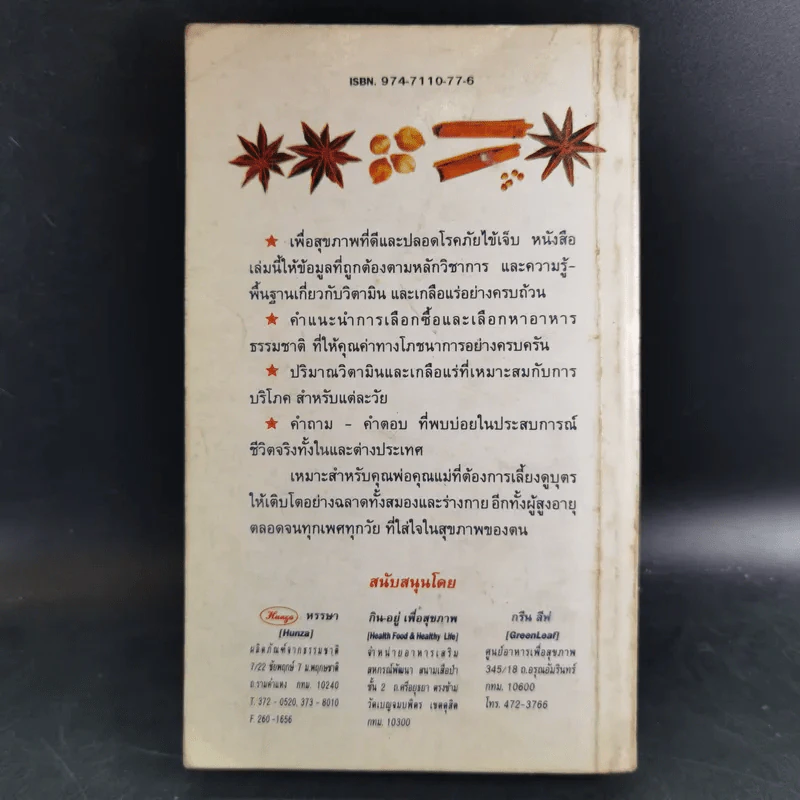 ISBN. 974-7110-77-6
★ เพื่อสุขภาพที่ดีและปลอดโรคภัยไข้เจ็บ หนังสือ
เล่มนี้ให้ข้อมูลที่ถูกต้องตามหลักวิชาการ และความรู้-
พื้นฐานเกี่ยวกับวิตามิน และเกลือแร่อย่างครบถ้วน
★ คำแนะนำการเลือกซื้อและเลือกหาอาหาร
ธรรมชาติ ที่ให้คุณค่าทางโภชนาการอย่างครบครัน
★ ปริมาณวิตามินและเกลือแร่ที่เหมาะสมกับการ
บริโภค สำหรับแต่ละวัย
★ คำถาม - คำตอบ ที่พบบ่อยในประสบการณ์
ชีวิตจริงทั้งในและต่างประเทศ
เหมาะสำหรับคุณพ่อคุณแม่ที่ต้องการเลี้ยงดูบุตร
ให้เติบโตอย่างฉลาดทั้งสมองและร่างกาย อีกทั้งผู้สูงอายุ
ตลอดจนทุกเพศทุกวัย ที่ใส่ใจในสุขภาพของตน
สนับสนุนโดย
Hunza หรรษา
(Hunza)
ผลิตภัณฑ์จากธรรมชาติ
7/22 ชัยพฤกษ์ 7 ม.พฤกษชาติ
ถ.รามคำแหง กทม. 10240
T. 372-0520, 373-8010
F. 260-1656
กิน-อยู่ เพื่อสุขภาพ
(Health Food & Healthy Life)
จำหน่ายอาหารเสริม
สหกรณ์พัฒนา สนามเสือป่า
ชั้น 2 ถ.ศรีอยุธยา ตรงข้าม
วัดเบญจมบพิตร เขตดุสิต
กทม. 10300
กรีน ลีฟ
(GreenLeaf)
ศูนย์อาหารเพื่อสุขภาพ
345/18 ถ.อรุณอัมรินทร์
กทม. 10600
โทร. 472-3766